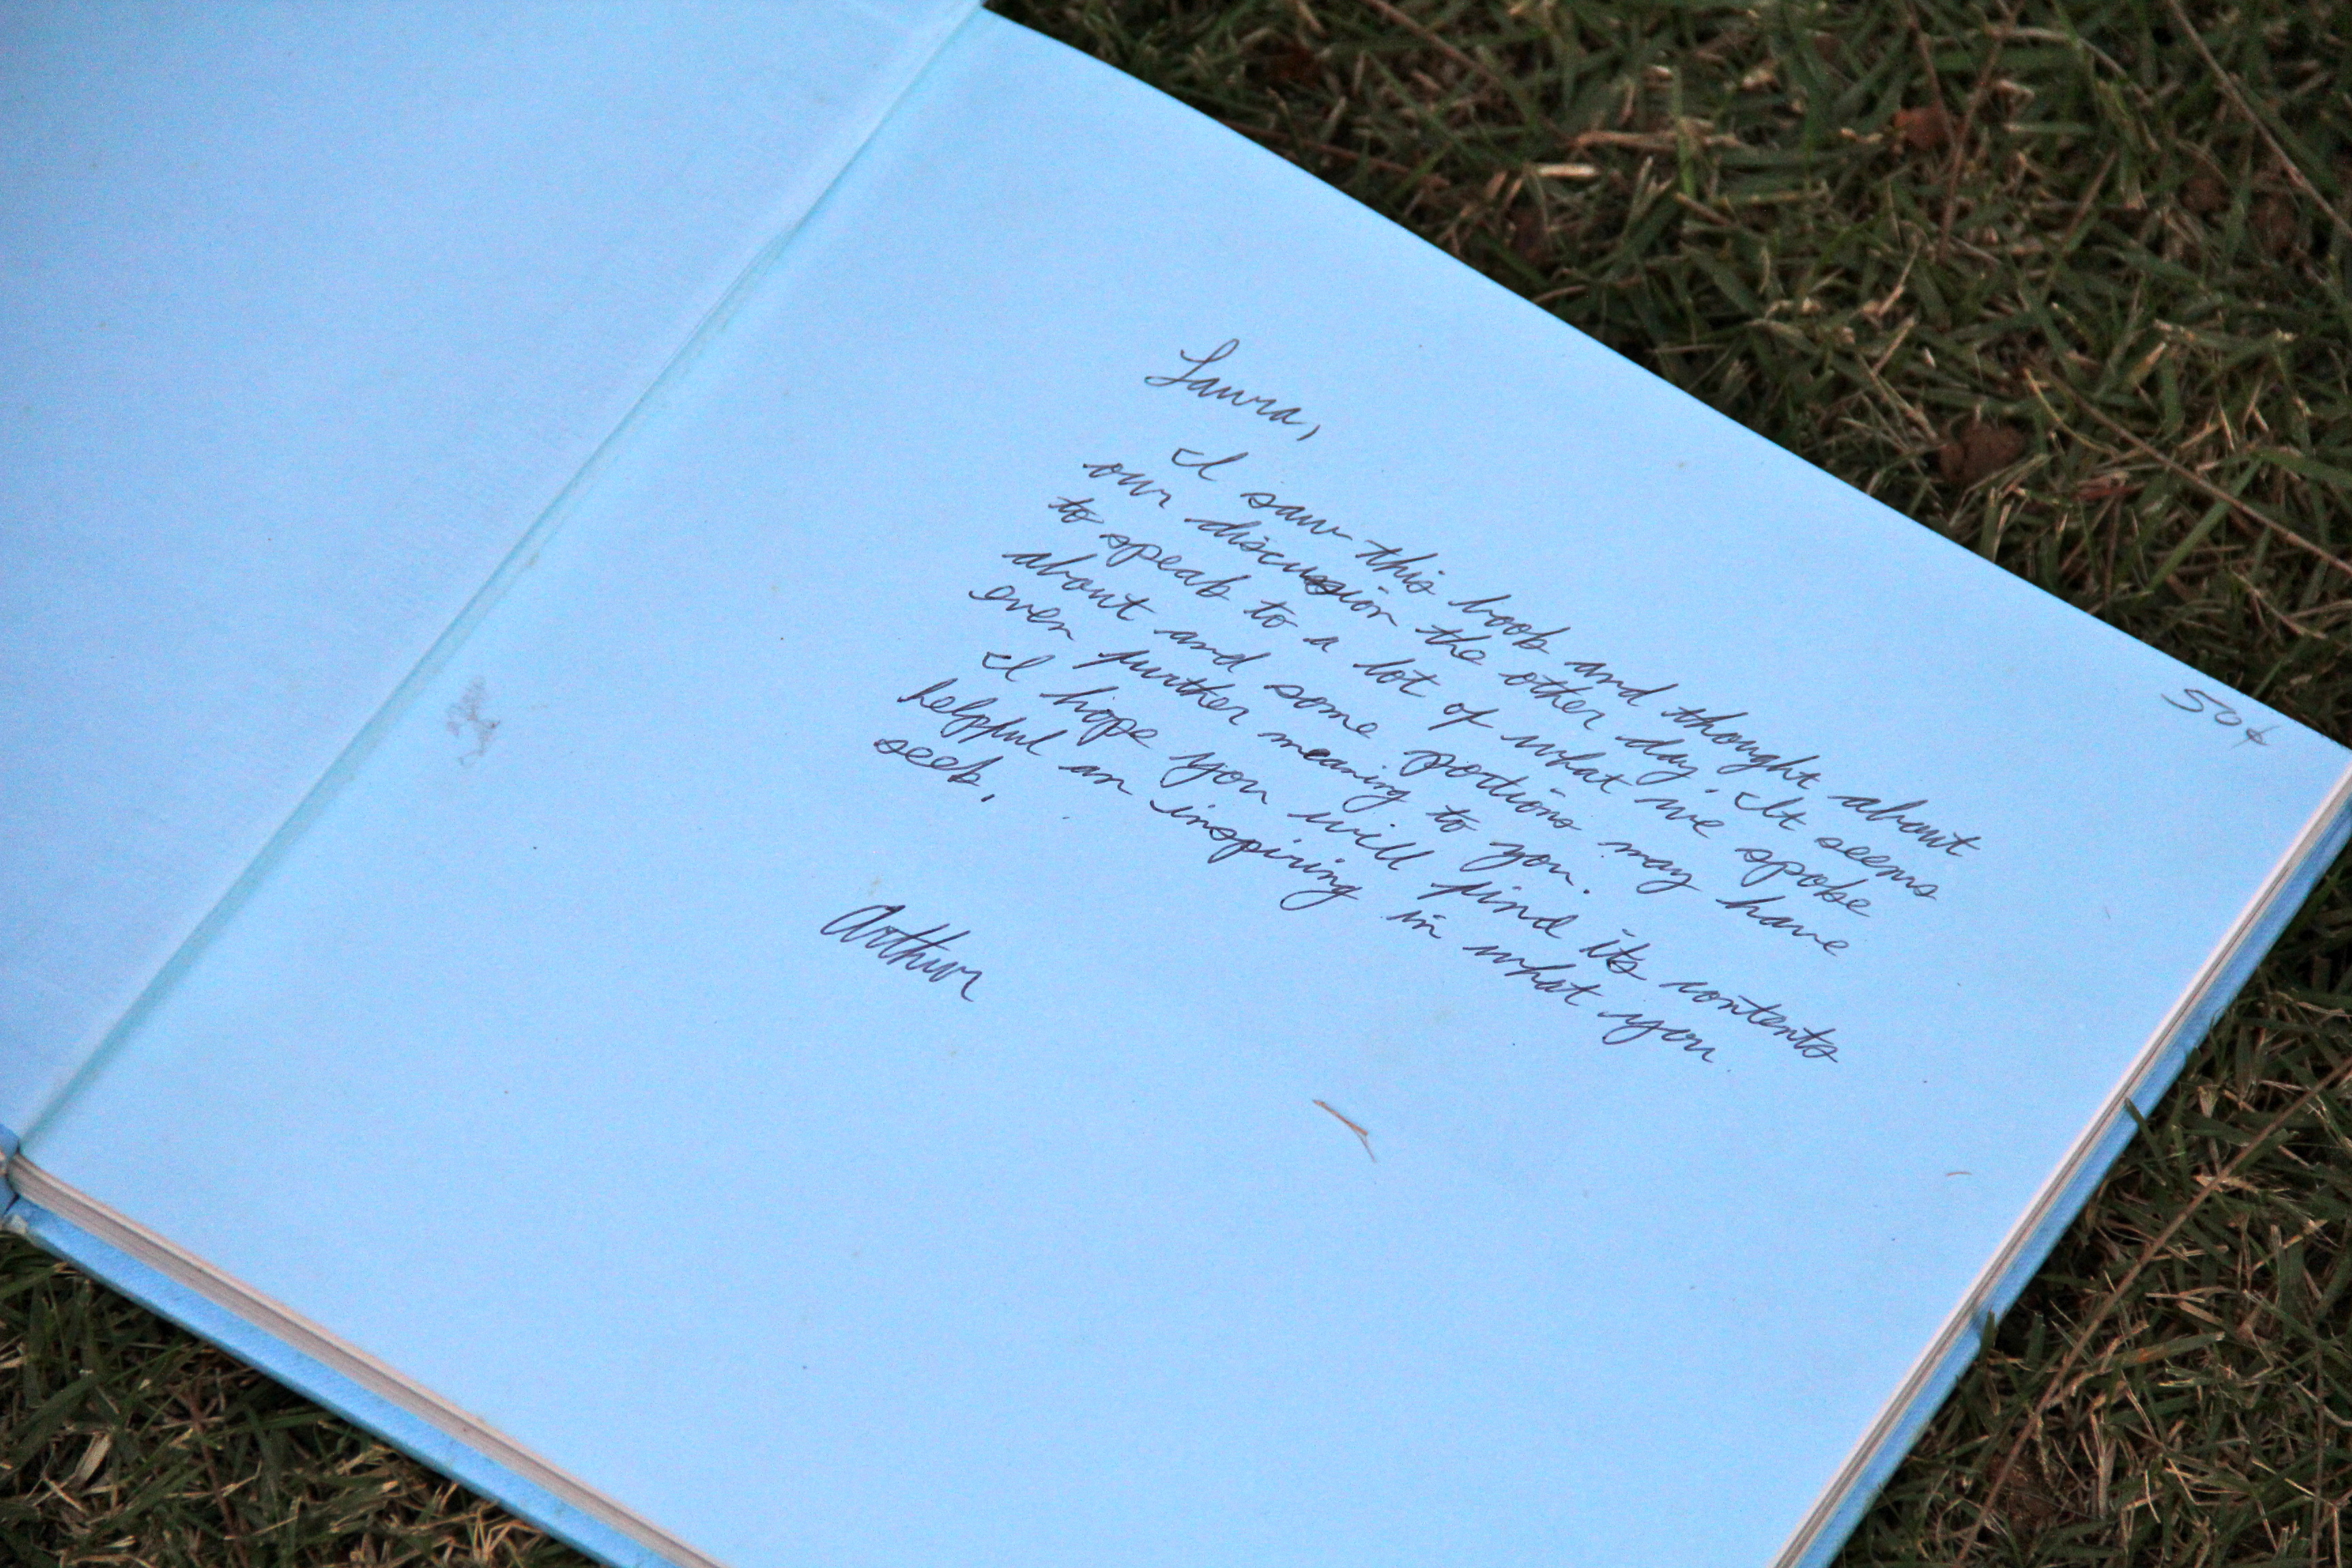 Laura,
I saw this book and thought about
our discussion the other day. It seems
to speak to a lot of what we spoke
about and some portions may have
even further meaning to you.
I hope you will find its contents
helpful an inspiring in what you
seek.
Arthur
50¢